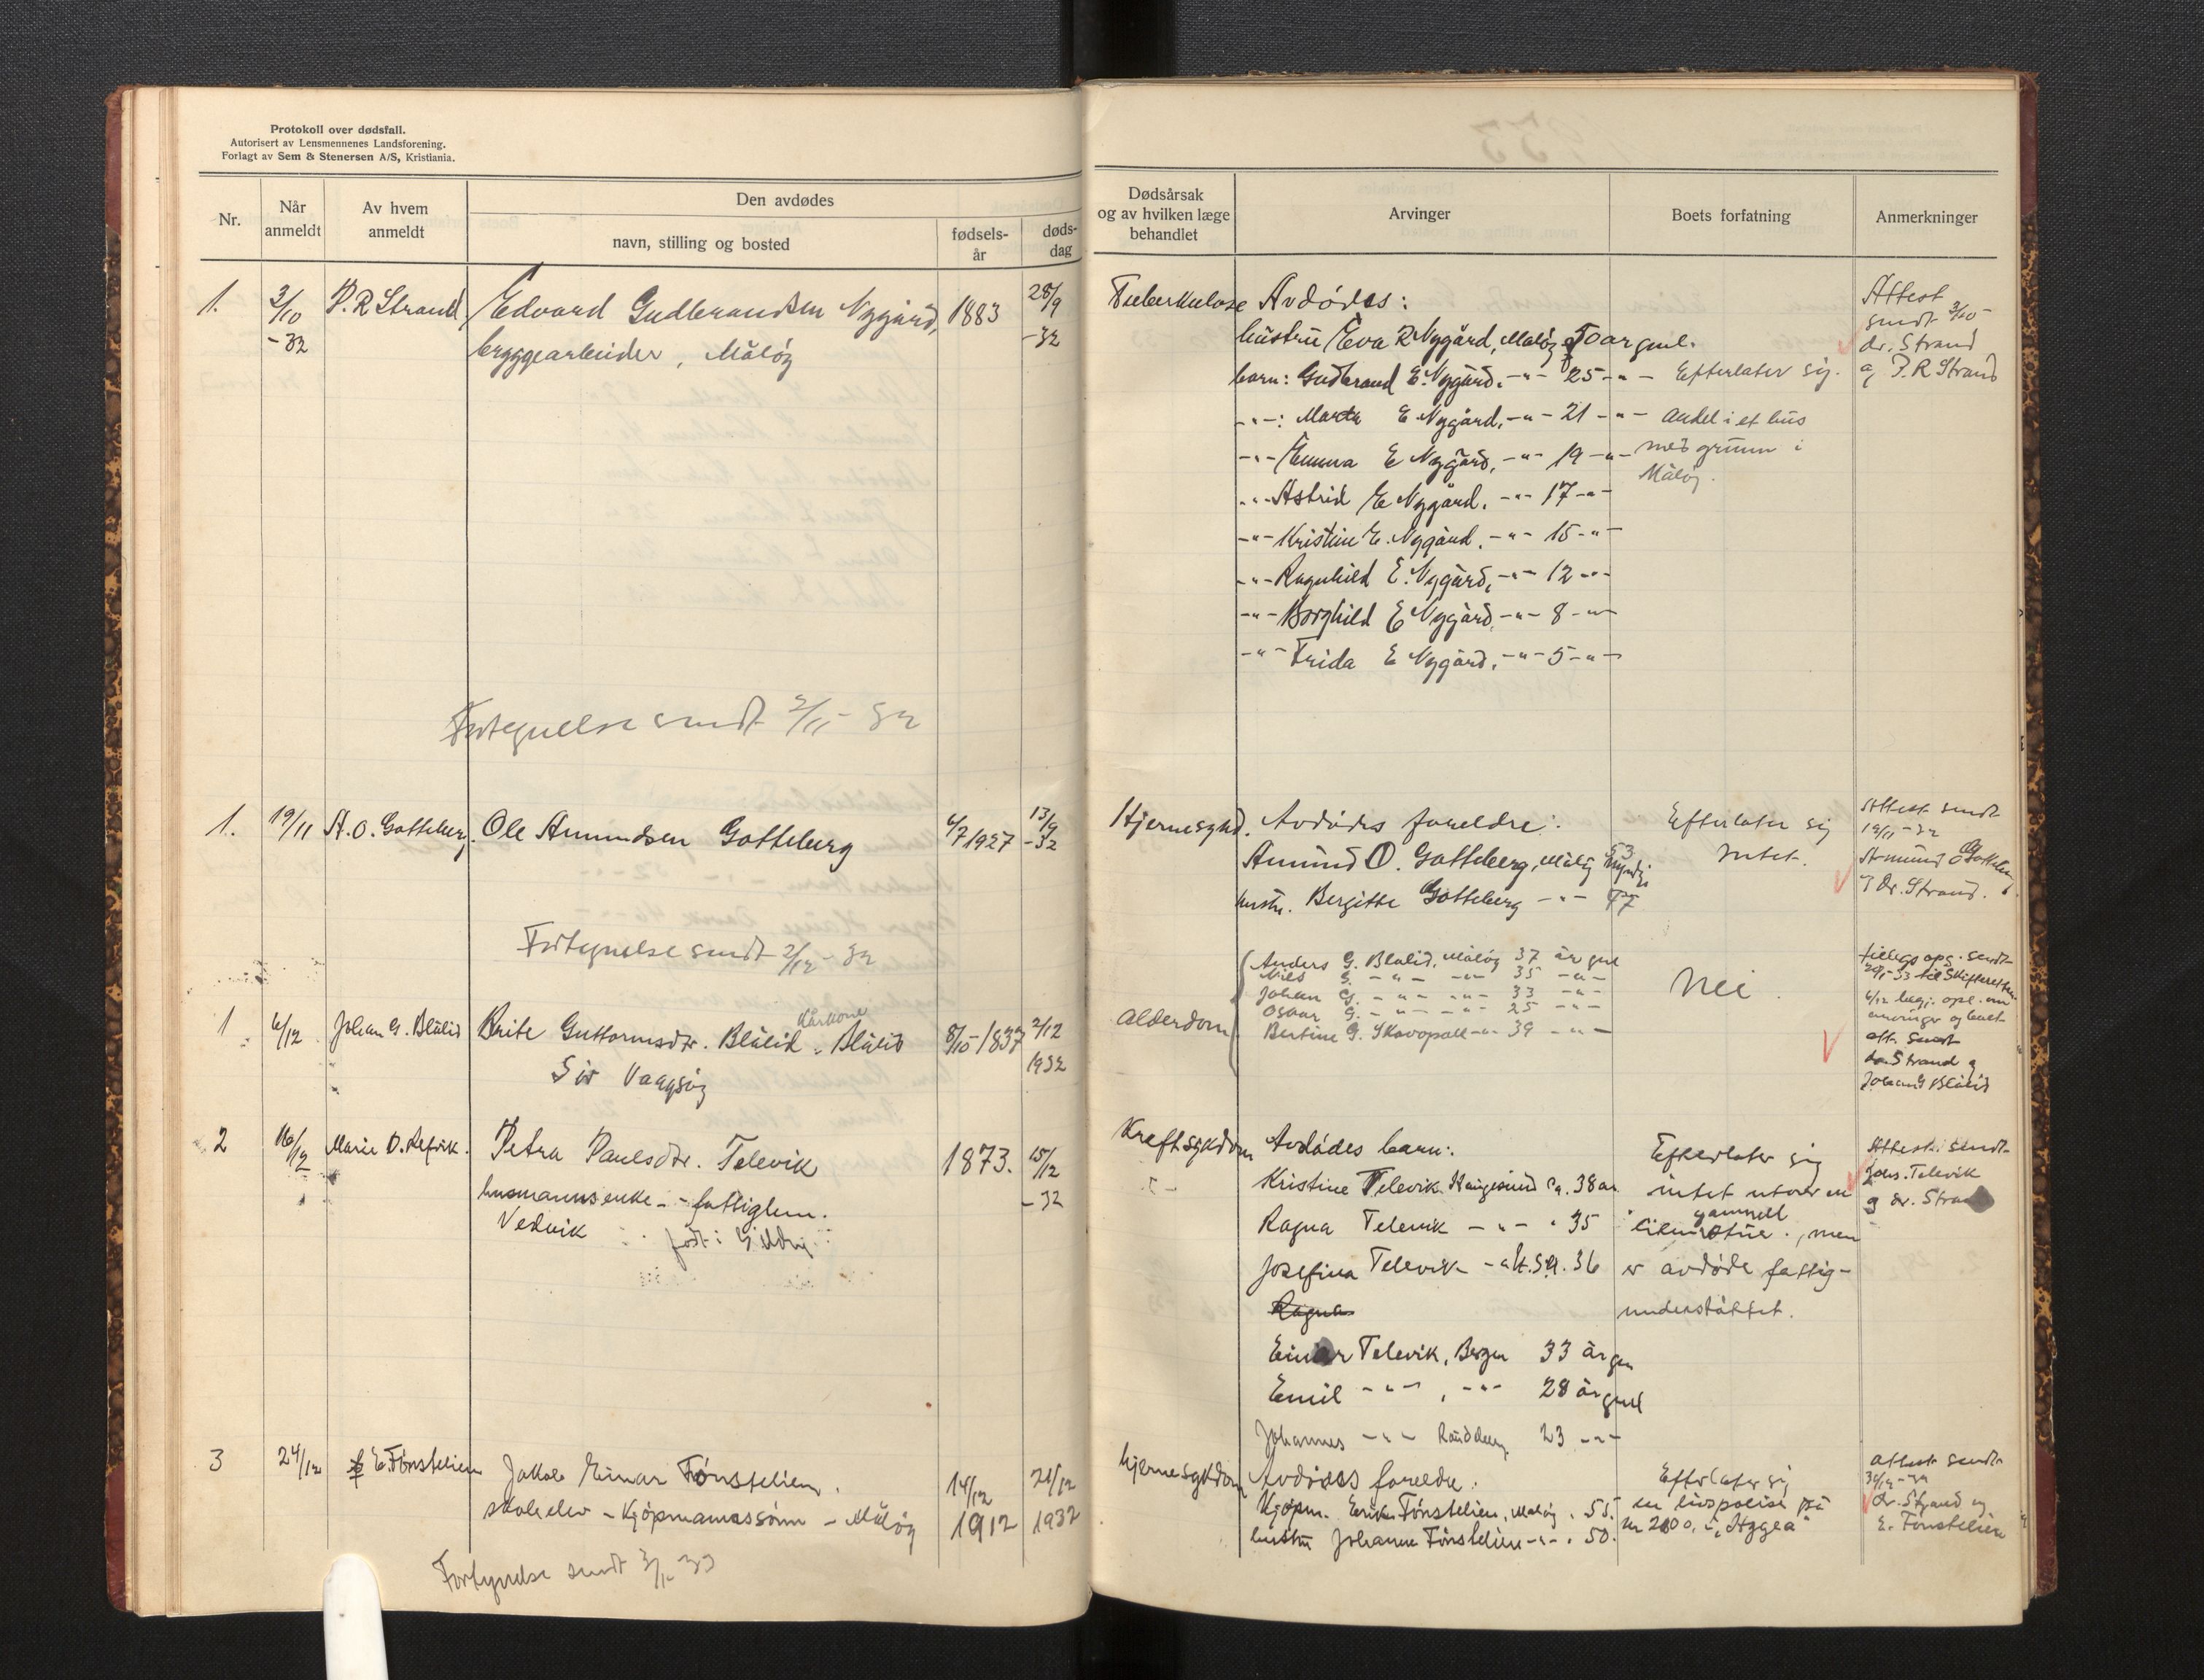 Protokoll over dødsfall.
Autorisert av Lensmennenes Landsforening.
Forlagt av Sem & Stenersen A/S, Kristiania.
Nr.
Når anmeldt
Av hvem anmeldt
Den avdødes
navn, stilling og bosted
fødsels-år
døds-dag
Dødsårsak og av hvilken læge behandlet
Arvinger
Boets forfatning
Anmerkninger
1. 3/10 -32 P. R Strand Edvard Gudbrandsen Nygård, 1883 28/9 -32
bryggearbeider, Måløy
Tuberkulose
Avdødes:
hustru Eva R Nygård, Måløy 50 år gml.
barn: Gudbrand E. Nygård, -"- 25 -"-
-"-: Marta E Nygård, -"- 21 -"-
-"- Emma E Nygård, -"- 19 -"-
-"- Astrid E Nygård, -"- 17 -"-
-"- Kristine E. Nygård, -"- 15 -"-
-"- Ragnhild E. Nygård, -"- 12 -"-
-"- Borghild E Nygård -"- 8 -"-
-"- Frida E Nygård, -"- 5 -"-
Efterlater sig
andel i et hus
med grunn i
Måløy.
Attest
sendt 3/10 -
dr. Strand
og P. R Strand
Fortegnelse sendt 2/11 - 32
1. 19/11 A. O. Gotteberg. Ole Amundsen Gotteberg 4/7 1927 13/9 -32
Hjernesykd.
Avdødes foreldre:
Amund O. Gotteberg, Måløy 53
hustr. Bergitte Gotteberg -"- 47
Efterlater sig
intet.
Attest sendt
19/11 - 32
Amund O Gotteberg
og dr. Strand.
Fortegnelse sendt 2/12 - 32
1 6/12 Johan G. Blålid Brite Guttormsdtr. Blålid, Kårkone Blålid 8/10 - 1837 2/12 1932
Sør Vaagsøy
Alderdom
Anders G. Blålid, Måløy 37 år gml
Nils G. -"- -"- 35 -"-
Johan G. -"- -"- 33 -"-
Oskar G. -"- -"- 25 -"-
Bertine G. Skavopoll -"- 39 -"-
Nei.
tillegs opg. sendt
6/12 begj. opl. om
arvinger og boet
att. sendt
dr. Strand og
Johan G Blålid
2 16/12 Marie D. Refvik. Petra Paulsdtr. Televik 1873. 15/12 -32
husmannsenke - fattiglem.
Vedvik født i
Kreftsykdom
Avdødes barn:
Kristine Televik Haugesund ca. 38 år
Ragna Televik -"- " 35
Josefina Televik 36
Ragna
Einar Televik, Bergen 33 år gm
Emil -"- , -"- 28 år gml
Johannes -"- 23 -"-
Efterlater sig
intet utover en
gammelt
men
er avdøde fattig-
understøttet.
Attest: sendt
Johs. Televik
og dr. Strand
3 24/12 E. Tønstelien Jakob Einar Tønstelien. 14/12 1912 21/12 1932
skoleelev - Kjøpmannssønn - Måløy
hjernesykdom
Avdødes foreldre:
Kjøpm. Erik Tønstelien, Måløy. 55.
hustru Johanne Tønstelien -"- . 50.
Efterlater sig
en livspolise på
kr 2000, i "Hygea"
attest sendt
dr. Strand og
E. Tønstelien
Fortegnelse sendt 3/1 - 33